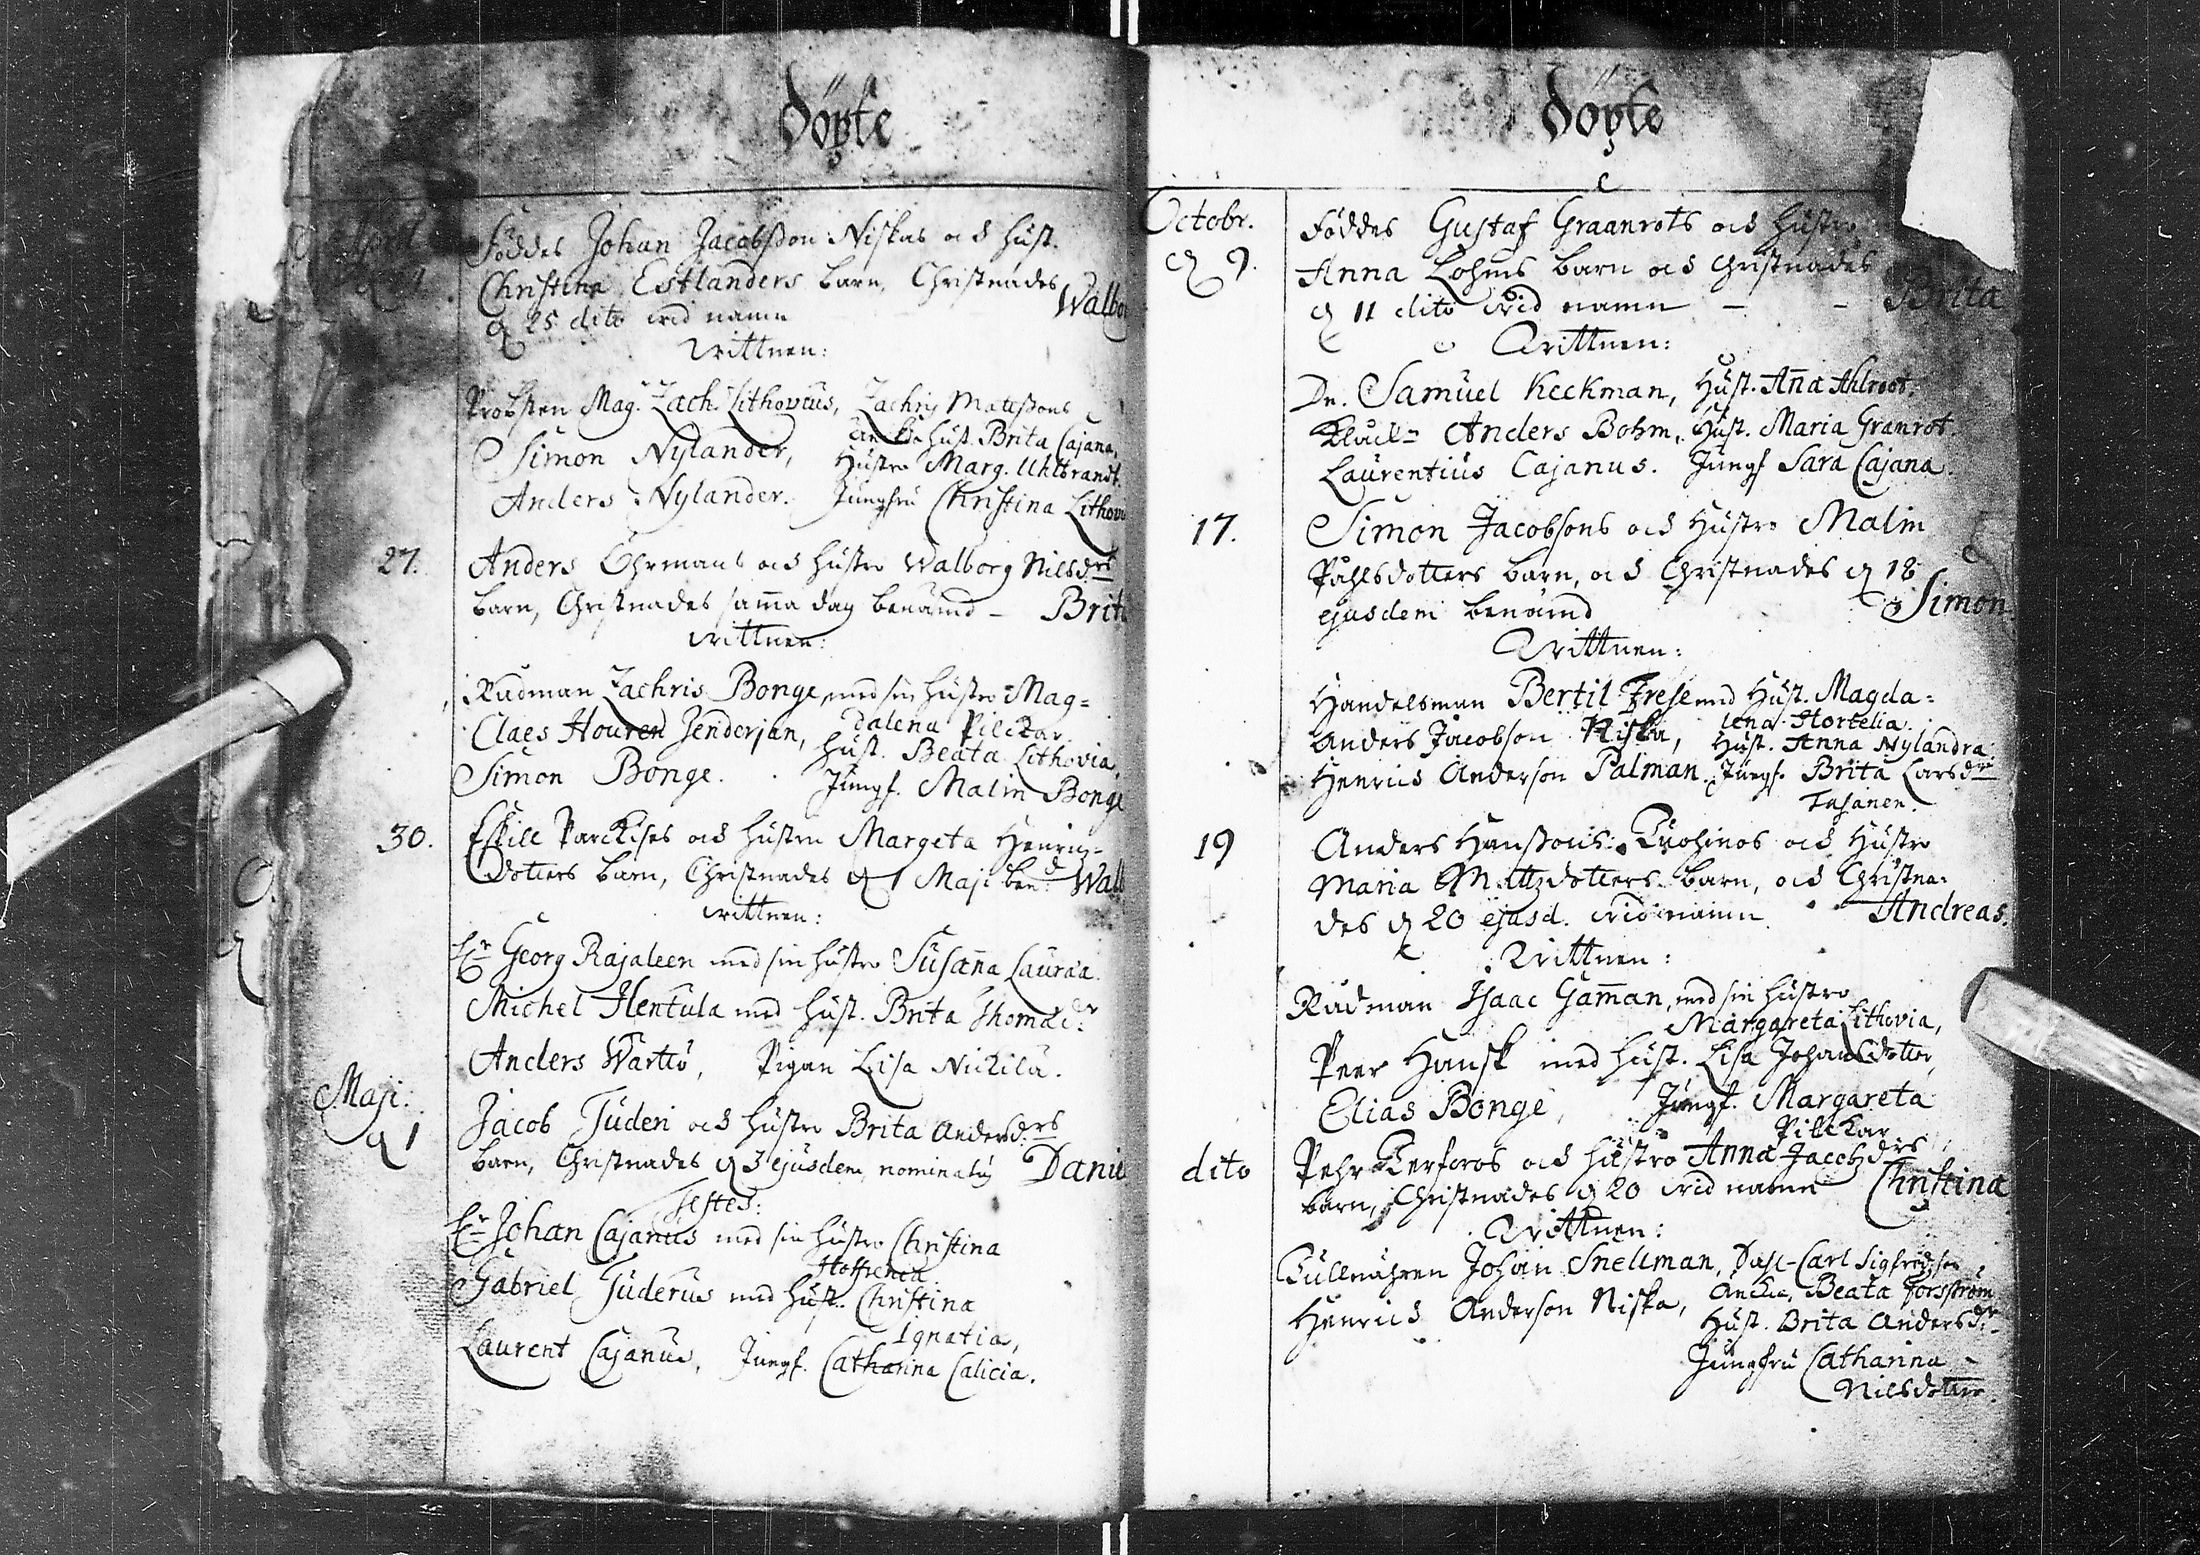 Döpte
April
Föddes Johan Jacobsson Niskas och hust.
Christina Estlanders barn, Christnades
d 25 dito vid namn Walbor
Wittnen:
Probsten Mag. Zach. Lithovius, Zachris Matssons
Enkia hust. Brita Cajana,
Simon Nylander, Hustro Marg. Uhlbrandt.
Anders Nylander. Jungfru Christina Lithovi
27. Anders Öhrmans och hustro Walborg Nilsdrs
barn, Christnades sama dag benämd - Brit
Wittnen:
Rådman Zachris Bonge, med sin hustro Mag-
dalena Pilckar.
Claes Houren Jenderjan, hust. Beata Lithovia,
Simon Bonge. Jungf. Malin Bonge
30. Eskill Parckises och hustru Margeta Henrics-
dotters barn, Christnades d 1 Maji bend: Walb
Wittnen:
Hr Georg Rajaleen med sin hustro Susana Lauraa.
Michel Hentula med hust. Brita Thomædr:
Anders Warttö, Pigan Lisa Nickilä.
Maji:
d 1 Jacob Tuderi och hustro Brita Andersdrs
barn, Christnades d 3 ejusdem, nominatus Danie
Testes:
Hr Johan Cajanus med sin hustro Christina
Hoffrenia
Gabriel Tuderus med hust. Christina
Ignatia,
Laurent Cajanus, Jungf. Catharina Calicia.
Döpte
Octobr.
d 9. Föddes Gustaf Graanrots och hustro
Anna Lohms barn och Christnades
d 11 dito vid namn - - Brita
Wittnen:
Dn. Samuel Keckman, Hust. Ana Ahlroot.
Anders Bohm, Hust. Maria Granrot.
Laurentius Cajanus. Jungf Sara Cajana.
17. Simon Jacobsons och Hustro Malin
Påhlsdotters barn, och Christnades d 18
ejusdem benämd Simon.
Wittnen:
Handelsman Bertil Frese med Hust. Magda-
lena Hortelia.
Anders Jacobson Niska, Hust. Anna Nylandra
Henrics Anderson Palman. Jungf. Brita Larsdr
Tasanen.
19 Anders Hanssons Kuohinos och Hustro
Maria Mattzdotters barn, och Christna-
des d 20 ejusd. vid namn Andreas.
Wittnen:
Rådman Isaac Gaman, med sin hustro
Margareta Lithovia,
Peer Hansk med hust. Lisa Johansdotter,
Elias Bonge, Jungf. Margareta
Pilckar
dito Pehr Kerforos och hustro Anna Jacobzdrs
barn, Christnades d 20 vid namn Christina
Wittnen:
Tullnähren Johan Snellman, Carl Sigfredson
Enckia, Beata Forsström
Henrics Anderson Niska, Hust. Brita Andersdr.
Jungfru Catharina
Nilsdotter.